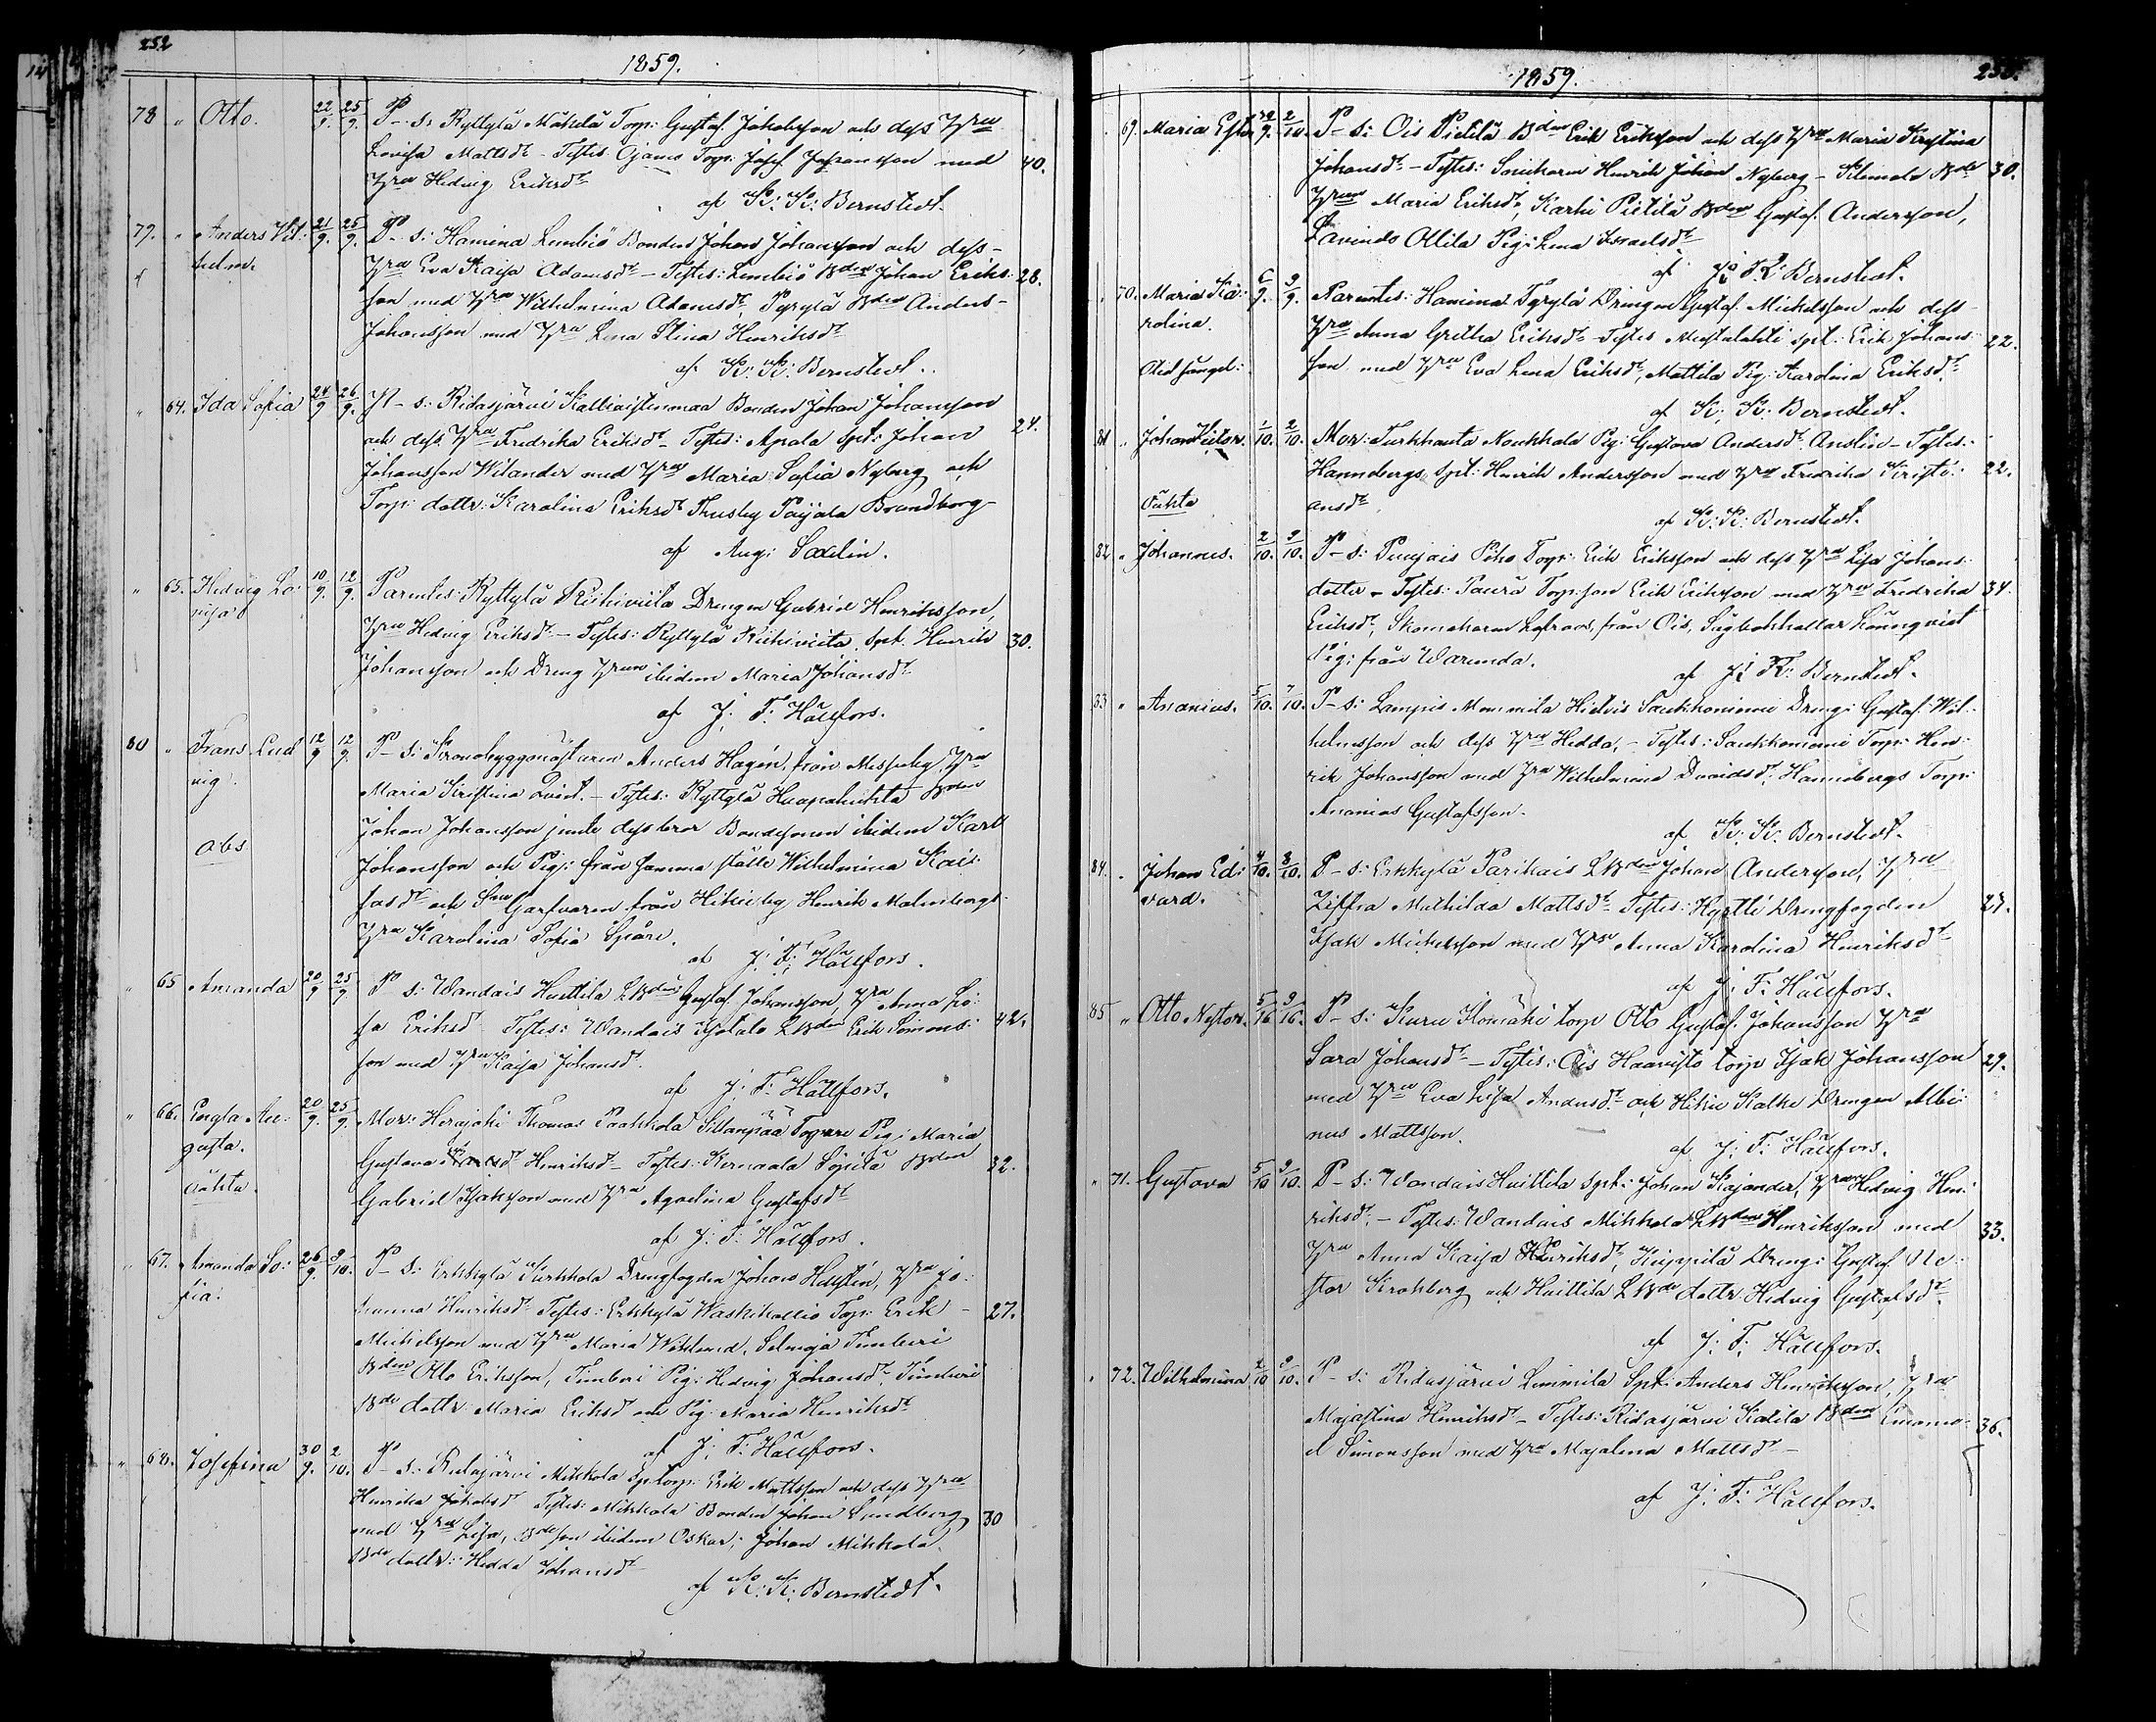 252
1859.
78 " Otto. 22/9. 25/9. P-s: Ryttylä Mäkelä Torp: Gustaf Jakobsson och dess Hru
Lovisa Mattsdr - Testes Ojams Torp: Josef Johansson med 40.
Hru Hedvig Eriksdr
af K: K: Bernstedt.
79. " Anders Vil: 21/9. 25/9. P-s: Hamina Lembiö Bonden Johan Johansson och dess
helm. Hru Eva Kaisa Adamsdr - Testes: Lembiö Bden Johan Eriks: 28.
son med Hru Wilhelmina Adamsdr, Pyrylä Bden Anders
Johansson med Hru Lena Stina Henriksdr
af K: K: Bernstedt.
" 64. Ida Sofia 24/9 26/9. P-s: Ridasjärvi Kalliaistenmaa Bonden Johan Johansson
och dess Hru Fredrika Eriksdr Testes: Apala Spt: Johan 24.
Johansson Wilander med Hru Maria Sofia Nyberg och
Torp: dottr: Karolina Eriksdr Thusby Paijala Brandborg
af Aug: Saxelin.
" 65. Hedvig Lo: 10/9. 12/9. Parentes: Ryttylä Riihiviita Drengen Gabriel Henriksson,
visa Hru Hedvig Eriksdr - Testes: Ryttylä Riihiviita Spt: Henrik 30.
Johansson och Dreng Hrun ibidem Maria Johansdr
af J: F: Hällfors.
80 " Frans Lud 12/9 12/9. P-s: Kronobyggmästaren Anders Hagén, från Messuby, Hru
vig. Maria Kristina Qvist. - Testes: Ryttylä Haapahuhta Bden
Johan Johansson jemte dess bror Bondesonen ibidem Karl
Obs Johansson och Pig: från samma ställe Wilhelmina Kai:
sasdr och Garfvaren från Hikiä by Henrik Malmbergs
Hru Karolina Sofia Spåre.
af J: F: Hällfors.
" 65 Amanda 20/9 25/9 P-s: Wandais Huittila LBden Gustaf Johansson, Hru Anna Lo:
sa Eriksdr Testes: Wandais Ylötalo LBden Erik Simons: 42.
son med Hru Kaisa Johansdr.
af J: F: Hällfors.
" 66. Engla Au: 20/9. 25/9. Mor: Herajoki Thomas Paakkola Sillanpää Torpare Pig: Maria
gusta. Gustava Henriksdr - Testes: Kernaala Sipilä Bden 32.
Oäkta. Gabriel Isaksson med Hru Agatlina Gustafsdr
af J: F: Hällfors.
" 67. Amanda So: 26/9. 2/10. P-s: Erkkylä Kurkkola Drengfogden Johan Hellstén, Hru Jo:
fia. hanna Henriksdr Testes: Erkkylä Waskikallio Torp: Erik 27.
Michelsson med Hru Maria Wiklund, Selänoja Timberi
Bden Otto Eriksson, Timberi Pig: Hedvig Johansdr, Timberi
Bde dottr Maria Eriksdr och Pig Maria Henriksdr
af J: F: Hällfors.
" 68. Josefina 30/9. 2/10. P-s: Ridasjärvi Mikkola Sptorp: Erik Mattsson och dess Hru
Henrika Jakobsdr Testes: Mikkola Bonden Johan Lundberg 30
med Hru Lisa, Bdeson ibidem Oskar; Johan Mikkola
Bde dottr: Hedda Johansdr
af K: K: Bernstedt.
1859.
253.
69. Maria Ester 29/9. 2/10. P-s: Ois Pietilä Bden Erik Eriksson och dess Hru Maria Kristina
Johansdr - Testes: Snickaren Henrik Johan Nyberg - Klemola Bde 30.
Hrun Maria Eriksdr, Karhi Pietilä Bden Gustaf Andersson,
Lavinds Ollila Pig: Lena Israelsdr
af K: K: Bernstedt.
" 70. Maria Ka: 6/9. 9/9. Parentes: Hamina Pyrylä Drengen Gustaf Michelsson och dess
rolina. Hru Anna Gretha Eriksdr Testes Mustalahti Spt: Erik Johans: 22.
Död född: son med Hru Eva Lena Eriksdr, Mattila Pig: Karolina Eriksdr.
af K: K: Bernstedt.
81 " Johan Victor. 1/10. 2/10. Mor: Turkhauta Noukkala Pig: Gustava Andersdr Anslin - Testes:
Hannebergs Spt: Henrik Andersson med Hru Fredrika Kristi: 22.
Oäkta ansdr
af K: K: Bernstedt.
82 " Johannes. 2/10. 9/10. P-s: Puujais Piho Torp: Erik Eriksson och dess Hru Lisa Johans:
dotter - Testes: Paura Torp:son Erik Eriksson med Hru Fredrika 34.
Eriksdr, Skomakaren Lofraos, från Ois, Sågbokhållar Lönnqvist
Pig: från Warunda.
af K: K: Bernstedt.
83 " Ananias. 5/10. 7/10. P-s: Lampis Mommila Hietois Saukkoniemi Dreng: Gustaf Wil:
helmsson och dess Hru Hedda, - Testes: Saukkoniemi Torp: Hen:
rik Johansson med Hru Wilhelmina Davidsdr, Hannebergs Torp:
Ananias Gustafsson.
af K: K: Bernstedt.
84. " Johan Ed: 4/10. 8/10. P-s: Erkkylä Parikais LBden Johan Andersson, Hru
vard. Zippra Mathilda Mattsdr Testes: Hyrtti Drengfogden 27.
Isak Michelsson med Hru Anna Karolina Henriksdr
af J: F: Hällfors.
85 " Otto Nestor. 5/10 9/10. P-s: Kuru Ilomäki torp Otto Gustaf Johansson Hru
Sara Johansdr - Testes: Ois Haavisto torp Isak Johansson 29.
med Hru Eva Lisa Andersdr. och Hikiä Kalke Drengen Albi:
nus Mattsson.
af J: F: Hällfors.
" 71. Gustava 5/10 9/10. P-s: Wandais Huittila Spt: Johan Kajander, Hru Hedvig Hen:
riksdr. - Testes: Wandais Mikkola LBden Henriksson med 33.
Hru Anna Kaisa Henriksdr, Kuippila Dreng: Gustaf Ne:
stor Krohberg och Huittila LBde dottr Hedvig Gustafsdr.
af J: F: Hällfors.
" 72. Wilhelmina 2/10 9/10. P-s: Ridasjärvi Limmila Spt: Anders Henriksson, Hru
Majastina Henriksdr - Testes: Ridasjärvi Katila Bden Emanu: 36.
el Simonsson med Hru Majalena Mattsdr -
af J: F: Hällfors.